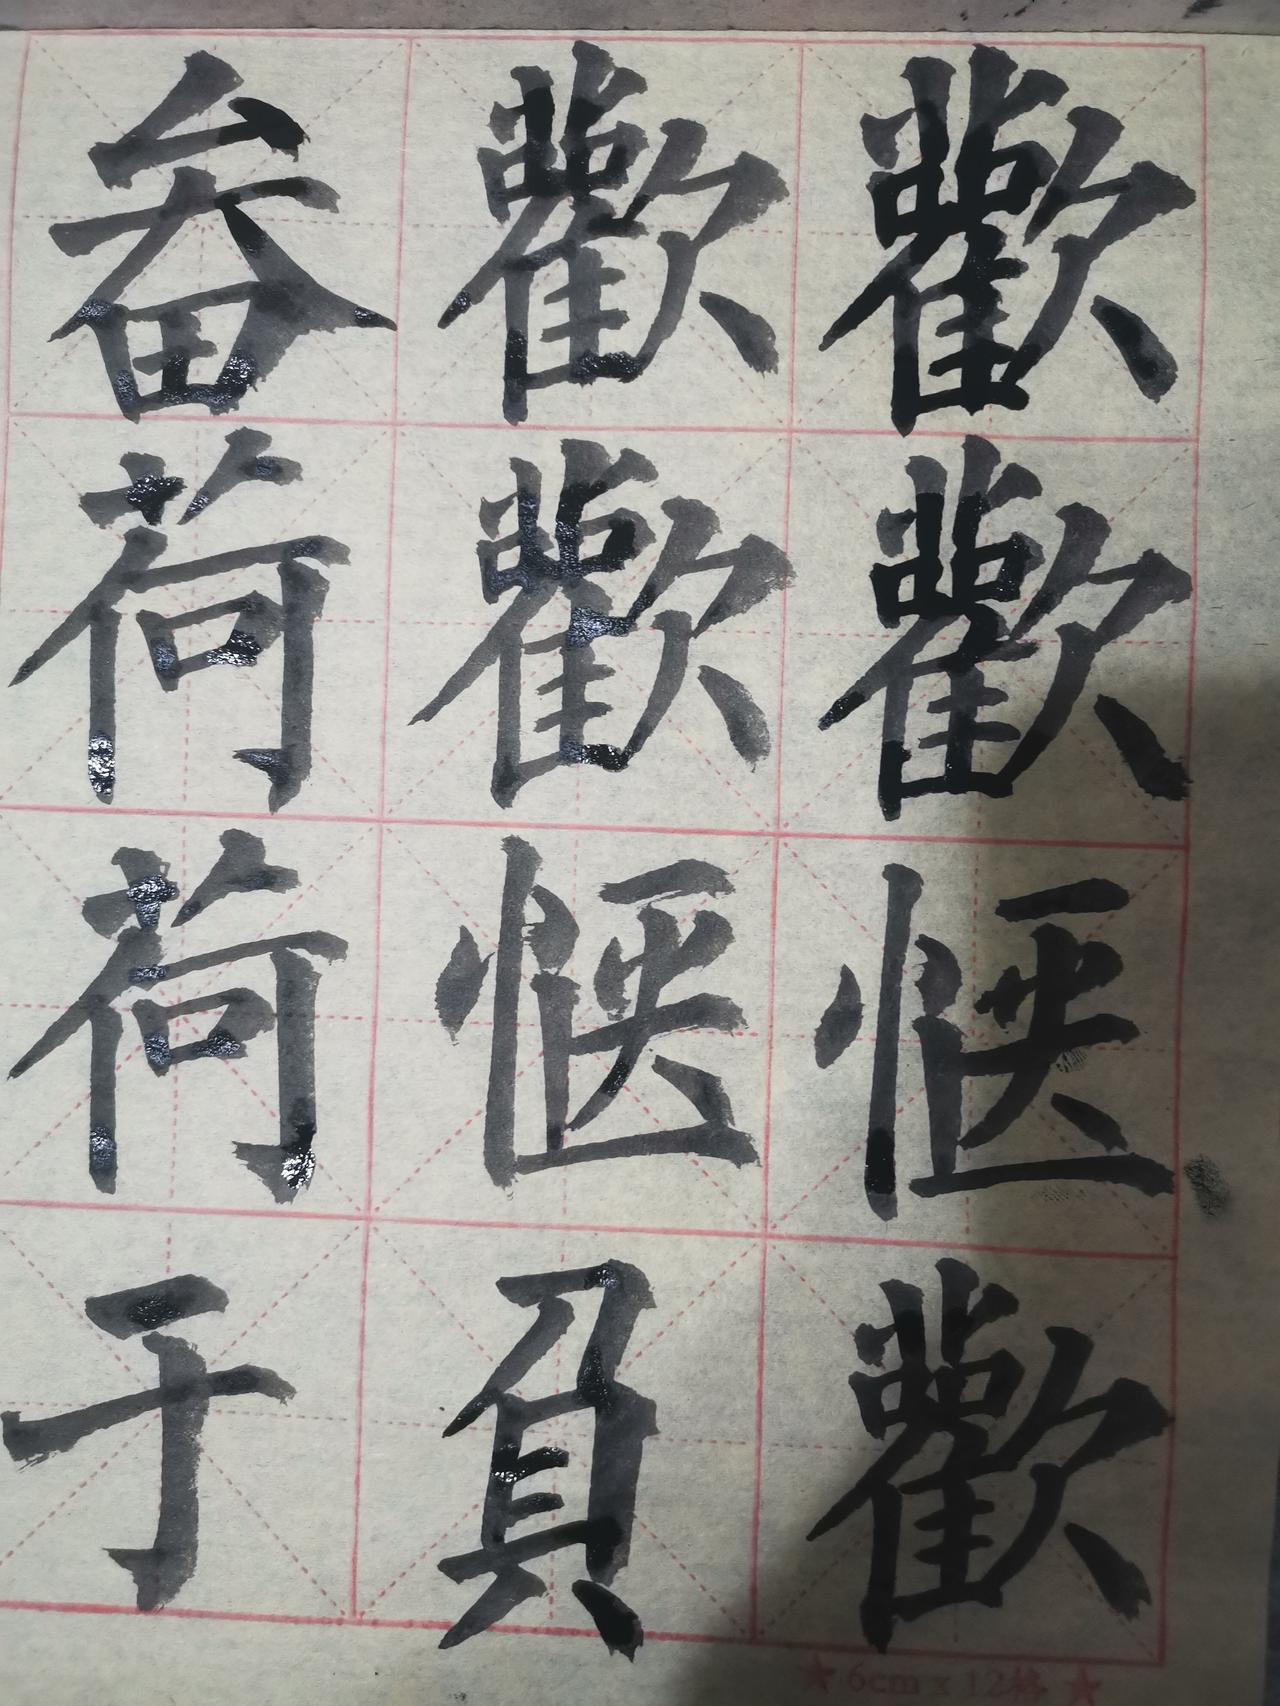 歡歡惬歡
歡歡惬負
畚荷荷于
★ 6cm x 12格 ★